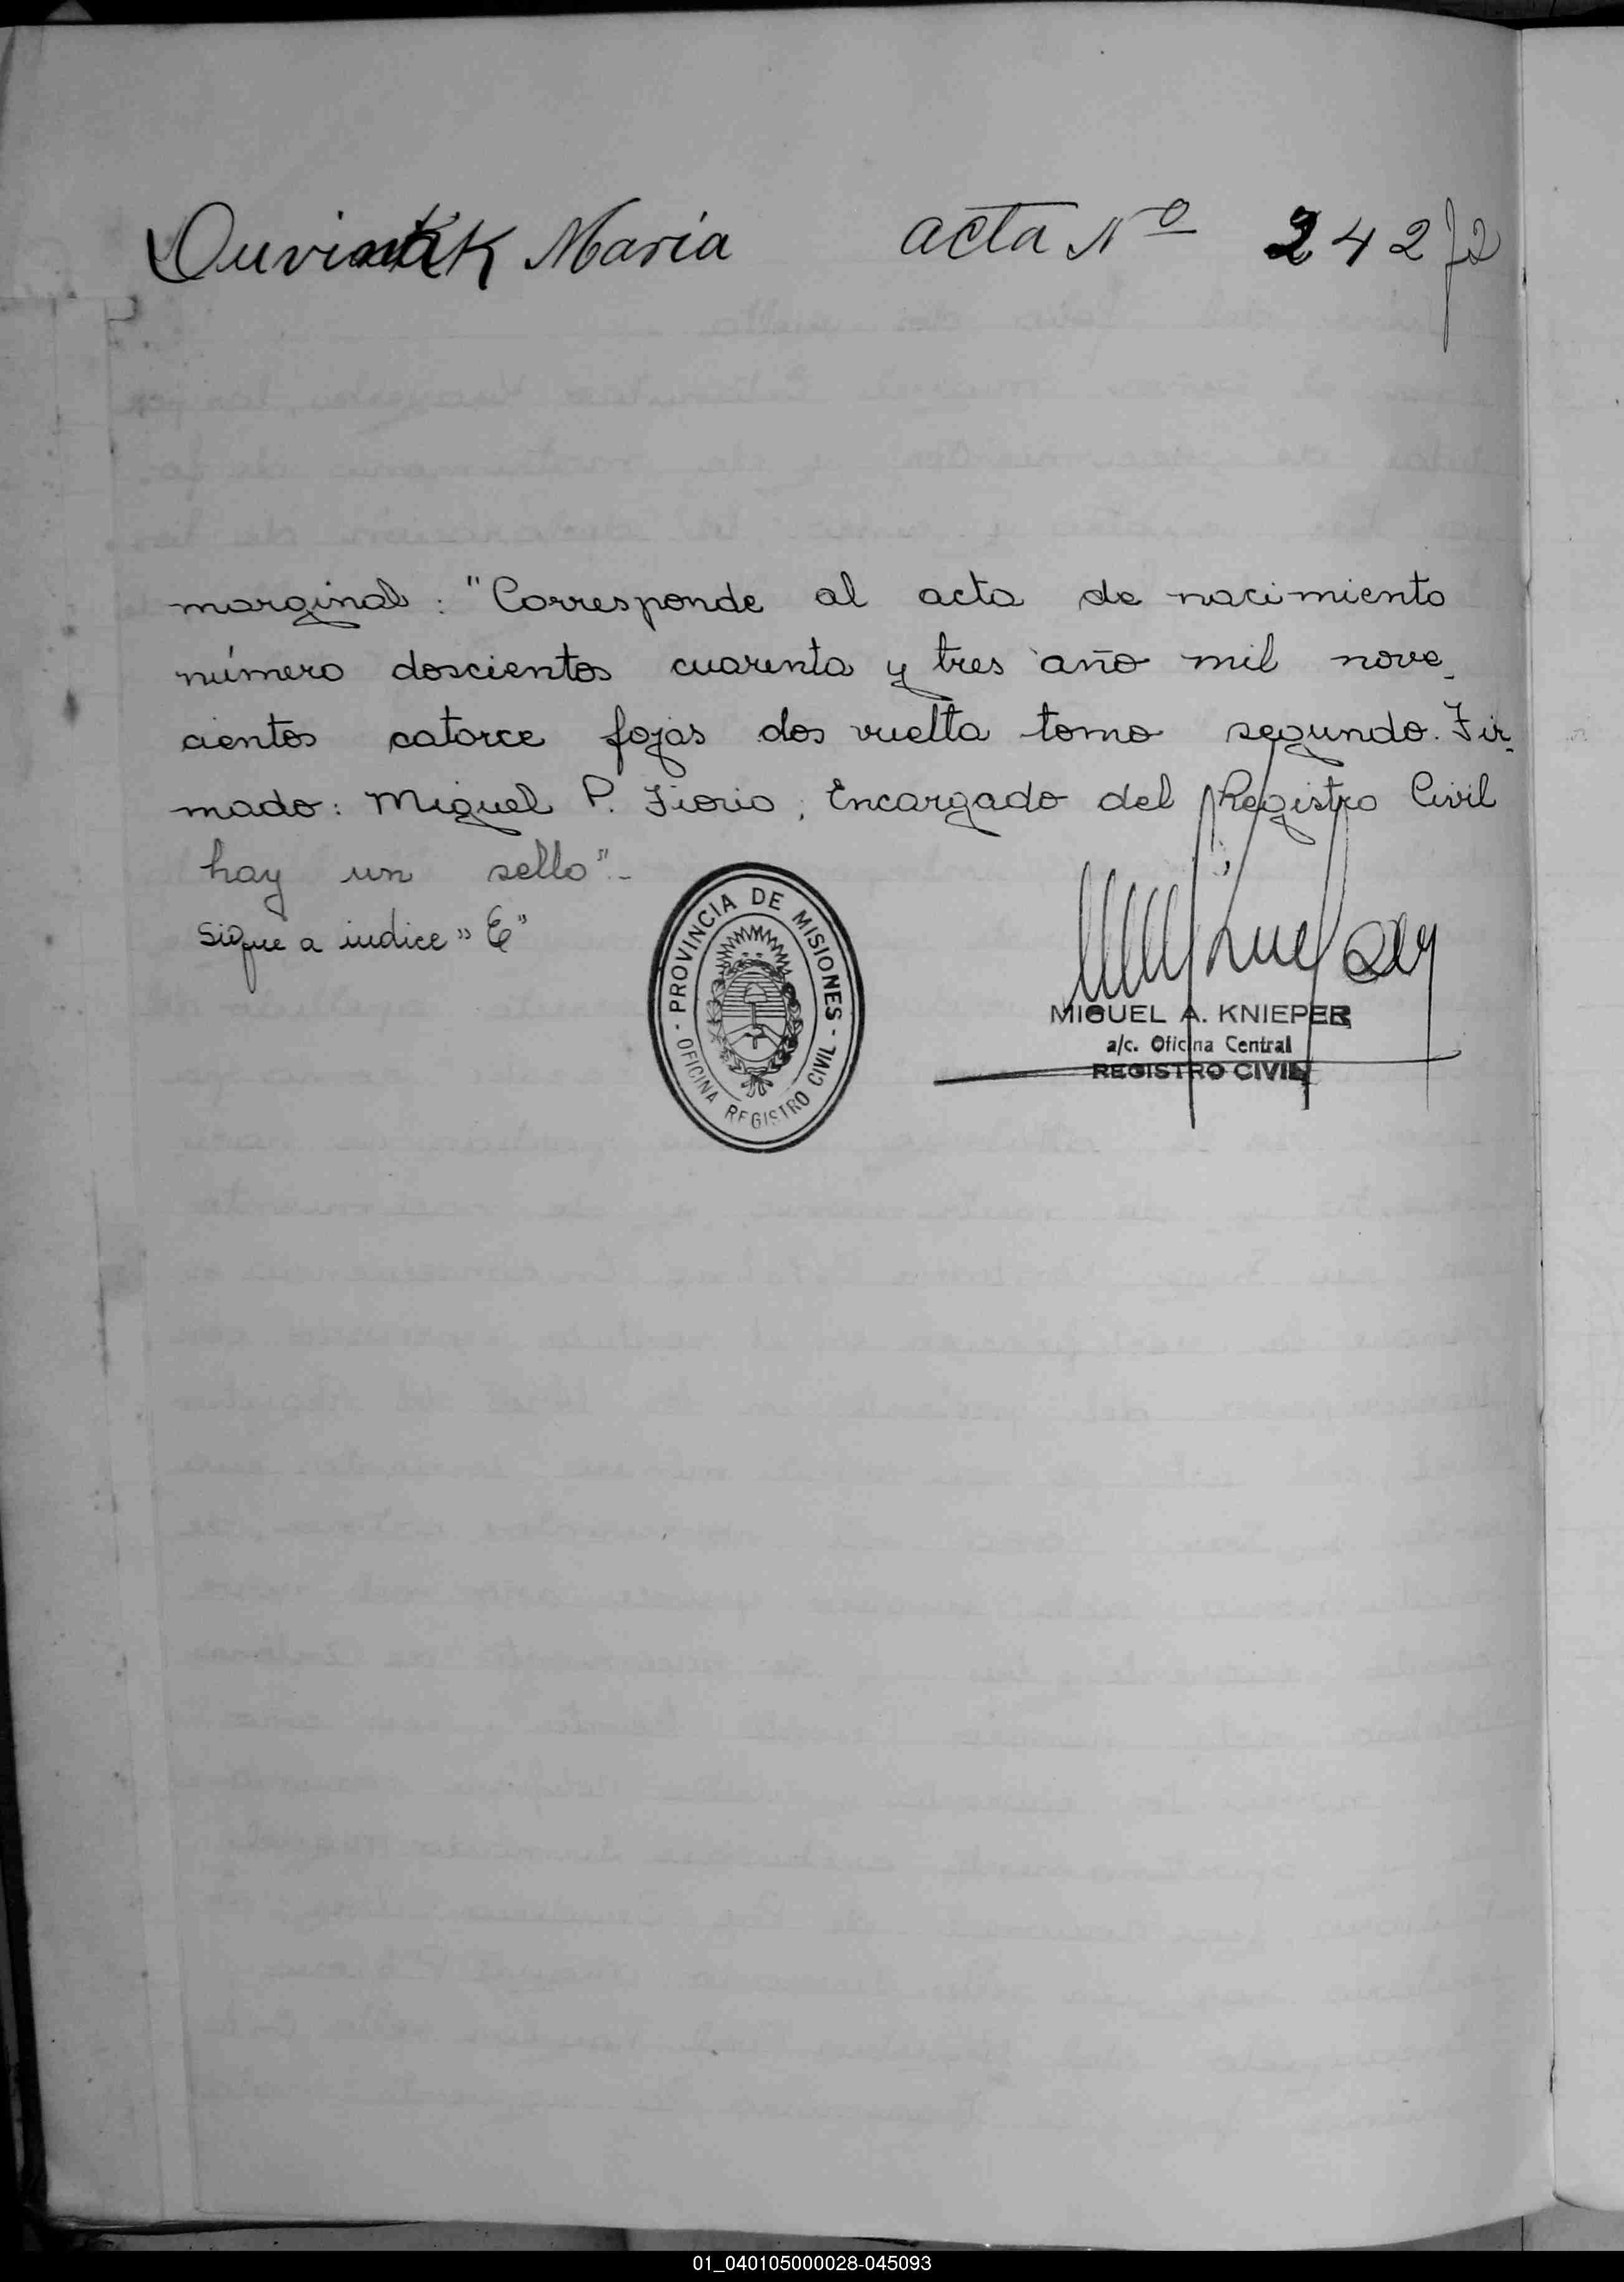 María acta Nº 242 f2
marginal: "Corresponde al acta de nacimiento
número doscientos cuarenta y tres año mil nove-
cientos catorce fojas dos vuelta tomo segundo. Fir-
mado: Miguel P. Fiorio, Encargado del Registro Civil
hay un sello".-
sigue a indice "E"
PROVINCIA DE MISIONES
- OFICINA REGISTRO CIVIL -
MIGUEL A. KNIEPER
a/c. Oficina Central
REGISTRO CIVIL
01_040105000028-045093